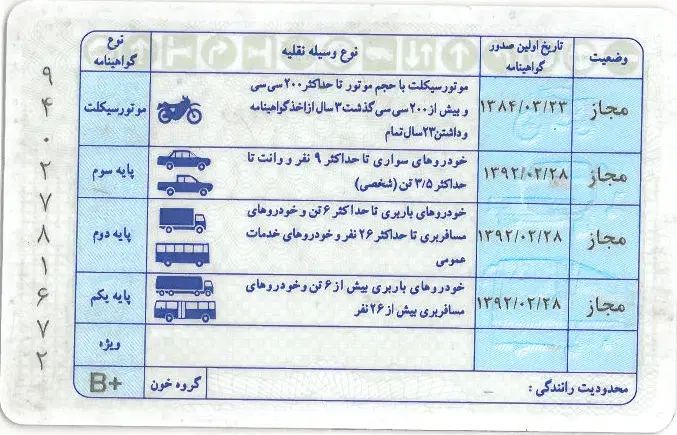 نوع گواهینامه
نوع وسیله نقلیه
تاریخ اولین صدور گواهینامه
وضعیت
موتورسیکلت
موتورسیکلت با حجم موتور تا حداکثر ۲۰۰ سی سی
و بیش از ۲۰۰ سی سی گذشت ۳ سال از اخذ گواهینامه
و داشتن ۲۳ سال تمام
۱۳۸۴/۰۳/۲۳
مجاز
پایه سوم
خودروهای سواری تا حداکثر ۹ نفر و وانت تا
حداکثر ۳/۵ تن (شخصی)
۱۳۹۲/۰۲/۲۸
مجاز
پایه دوم
خودروهای باربری تا حداکثر ۶ تن و خودروهای
مسافربری تا حداکثر ۲۶ نفر و خودروهای خدمات
عمومی
۱۳۹۲/۰۲/۲۸
مجاز
پایه یکم
خودروهای باربری بیش از ۶ تن و خودروهای
مسافربری بیش از ۲۶ نفر
۱۳۹۲/۰۲/۲۸
مجاز
ویژه
B+
گروه خون
محدودیت رانندگی : –
۹۴۰۲۷۸۱۶۷۲